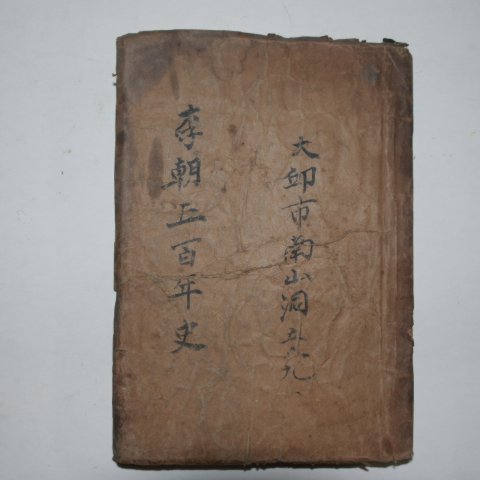 大邱市南山洞五六九
李朝五百年史